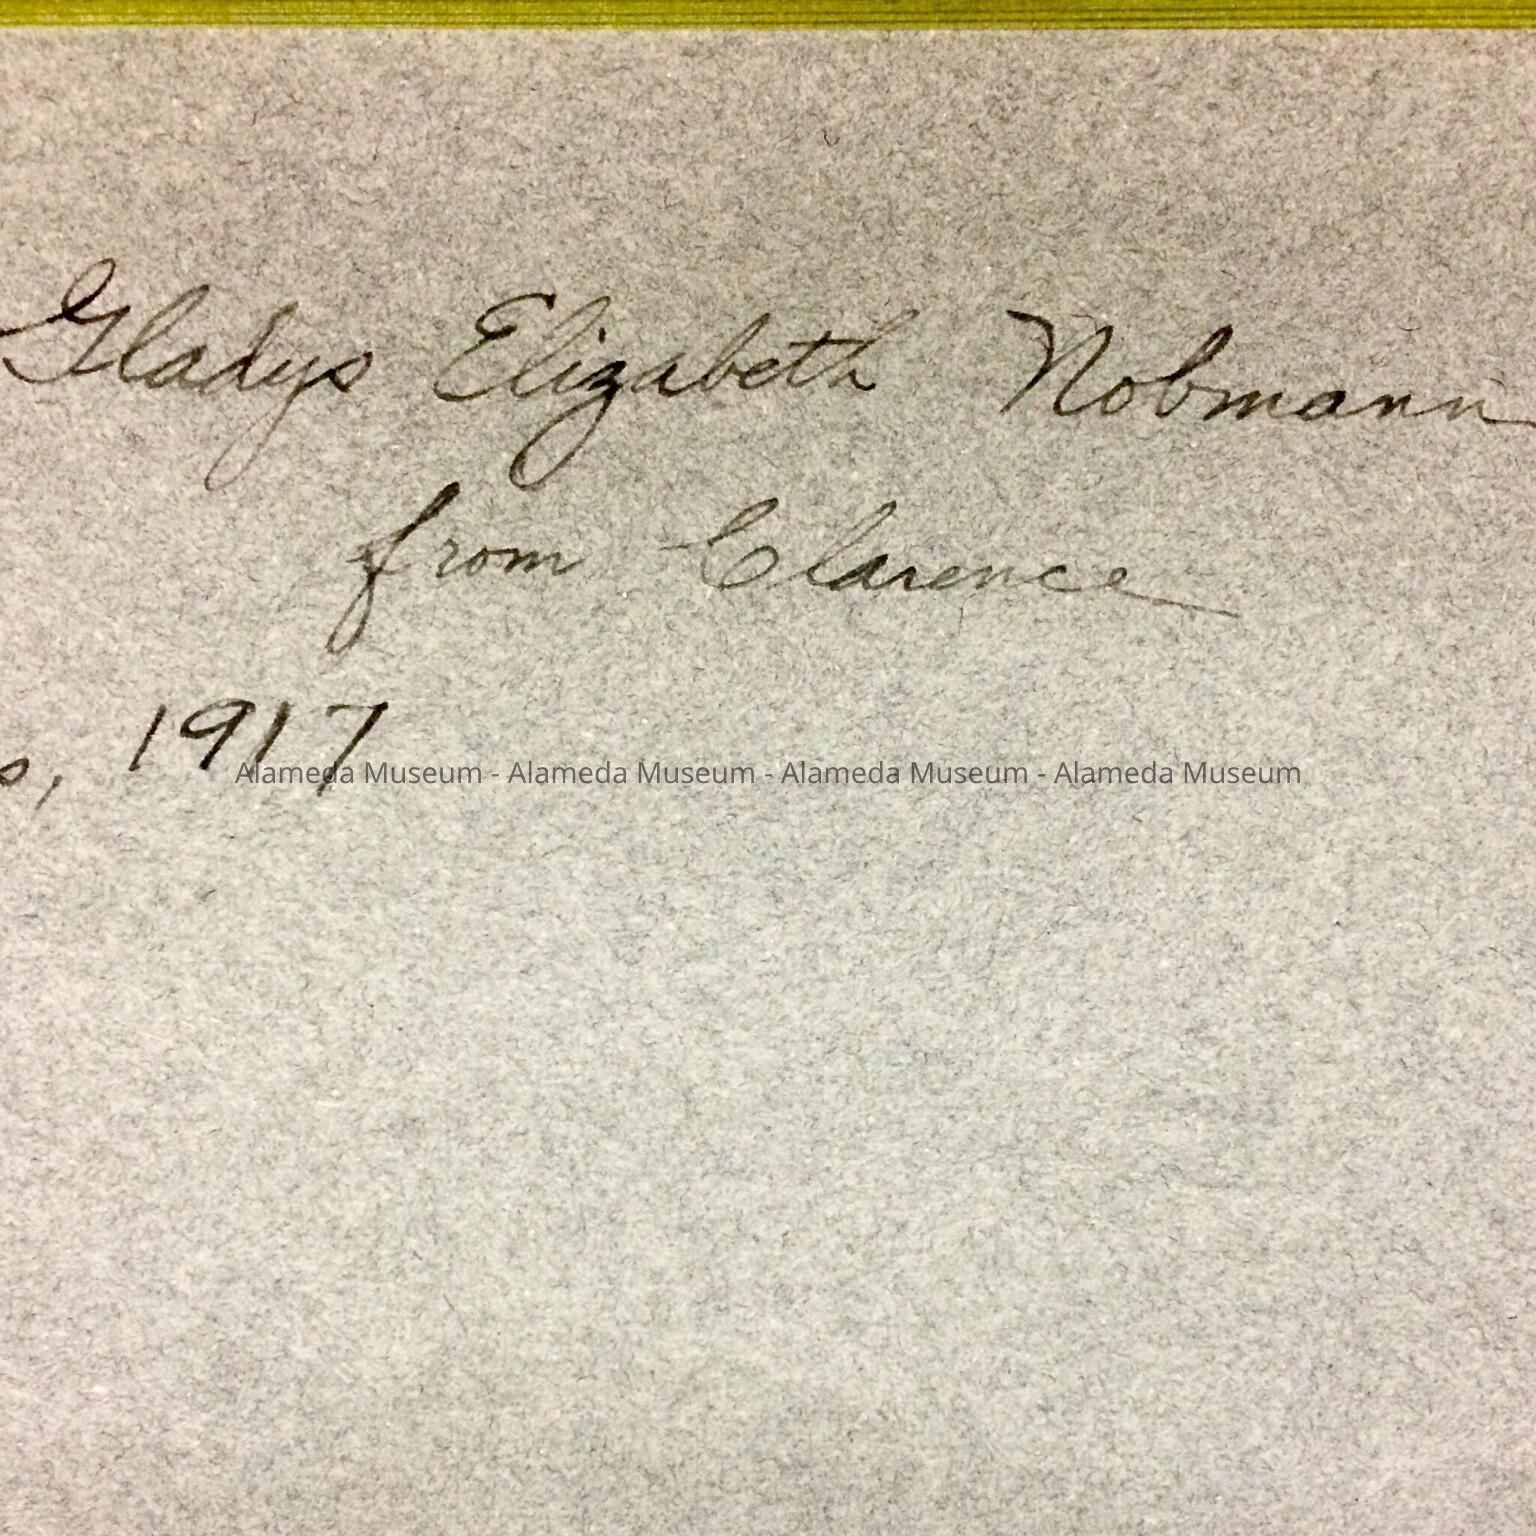 Gladys Elizabeth Nobmann
from Clarence
, 1917
Alameda Museum - Alameda Museum - Alameda Museum - Alameda Museum